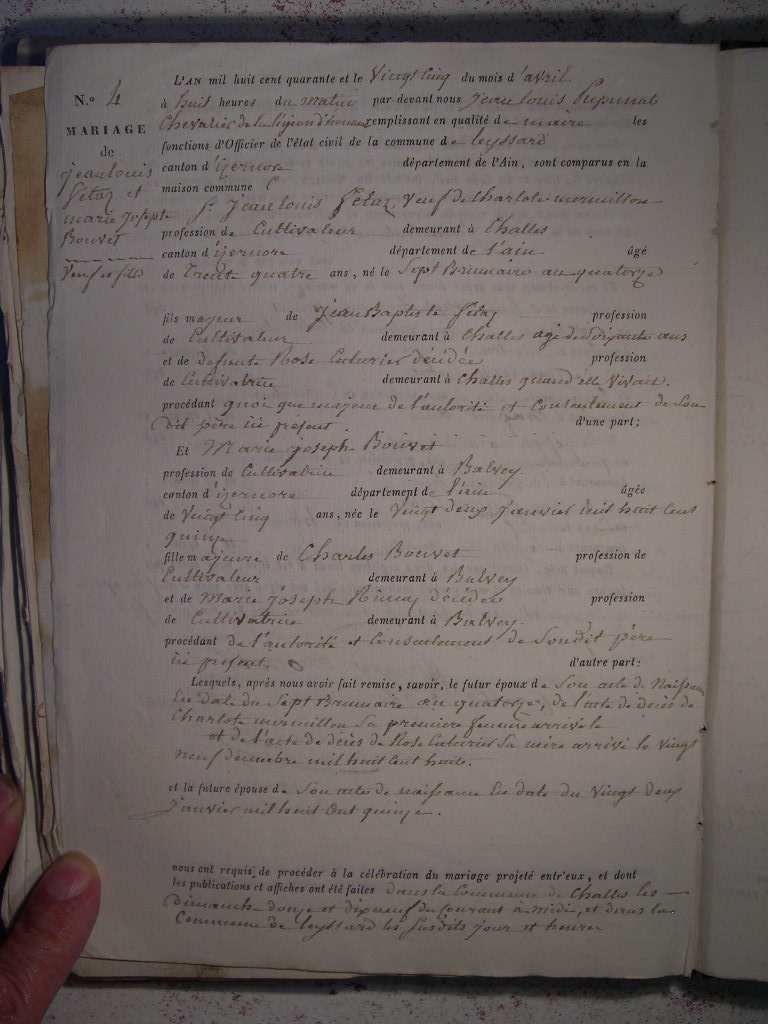 N.º 4
MARIAGE
de
jean louis
fétaz et
marie joseph
Bouvet
veuf et fille
L'AN mil huit cent quarante et le Vingt Cinq du mois d'avril
à huit heures du matin par-devant nous jean louis
Chevalier de la légion d'honneur remplissant en qualité de maire les
fonctions d'Officier de l'état civil de la commune de leyssard
canton d'izernore département de l'Ain, sont comparus en la
maison commune
Sr. jean louis fétaz Veuf de Charlote mermillon
profession de Cultivateur demeurant à Challes
canton d'izernore département de l'ain âgé
de trente quatre ans, né le Sept Brumaire an quatorze
fils majeur de jean Baptiste fétaz profession
de Cultivateur demeurant à Challes agé de Soixante ans
et de defunte Rose Culurier décédée profession
de Cultivatrice demeurant à Challes quand elle vivait.
procédant quoi que majeur de l'autorité et Consentement de Son
dit père ici présent d'une part;
Et Marie joseph Bouvet
profession de Cultivatrice demeurant à Balvey
canton d'izernore département de l'ain âgée
de Vingt Cinq ans, née le Vingt deux janvier mil huit Cent
quinze
fille majeure de Charles Bouvet profession de
Cultivateur demeurant à Balvey
et de Marie joseph décédée profession
de Cultivatrice demeurant à Balvey.
procédant de l'autorité et Consentement de Son dit père
ici présent. d'autre part:
Lesquels, après nous avoir fait remise, savoir, le futur époux de Son acte de Naissance
En date du Sept Brumaire an quatorze, de l'acte de décès de
Charlote mermillon Sa première femme arrivé le
et de l'acte de décès de Rose Culurier Sa mère arrivé le vingt
neuf décembre mil huit Cent huit.
et la future épouse de Son acte de naissance En date du Vingt deux
janvier mil huit Cent quinze.
nous ont requis de procéder à la célébration du mariage projeté entr'eux, et dont
les publications et affiches ont été faites dans la Commune de Challes les
Dimanche douze et dix neuf du Courant à midi, et dans la
Commune de leyssard les Susdits jour et heure